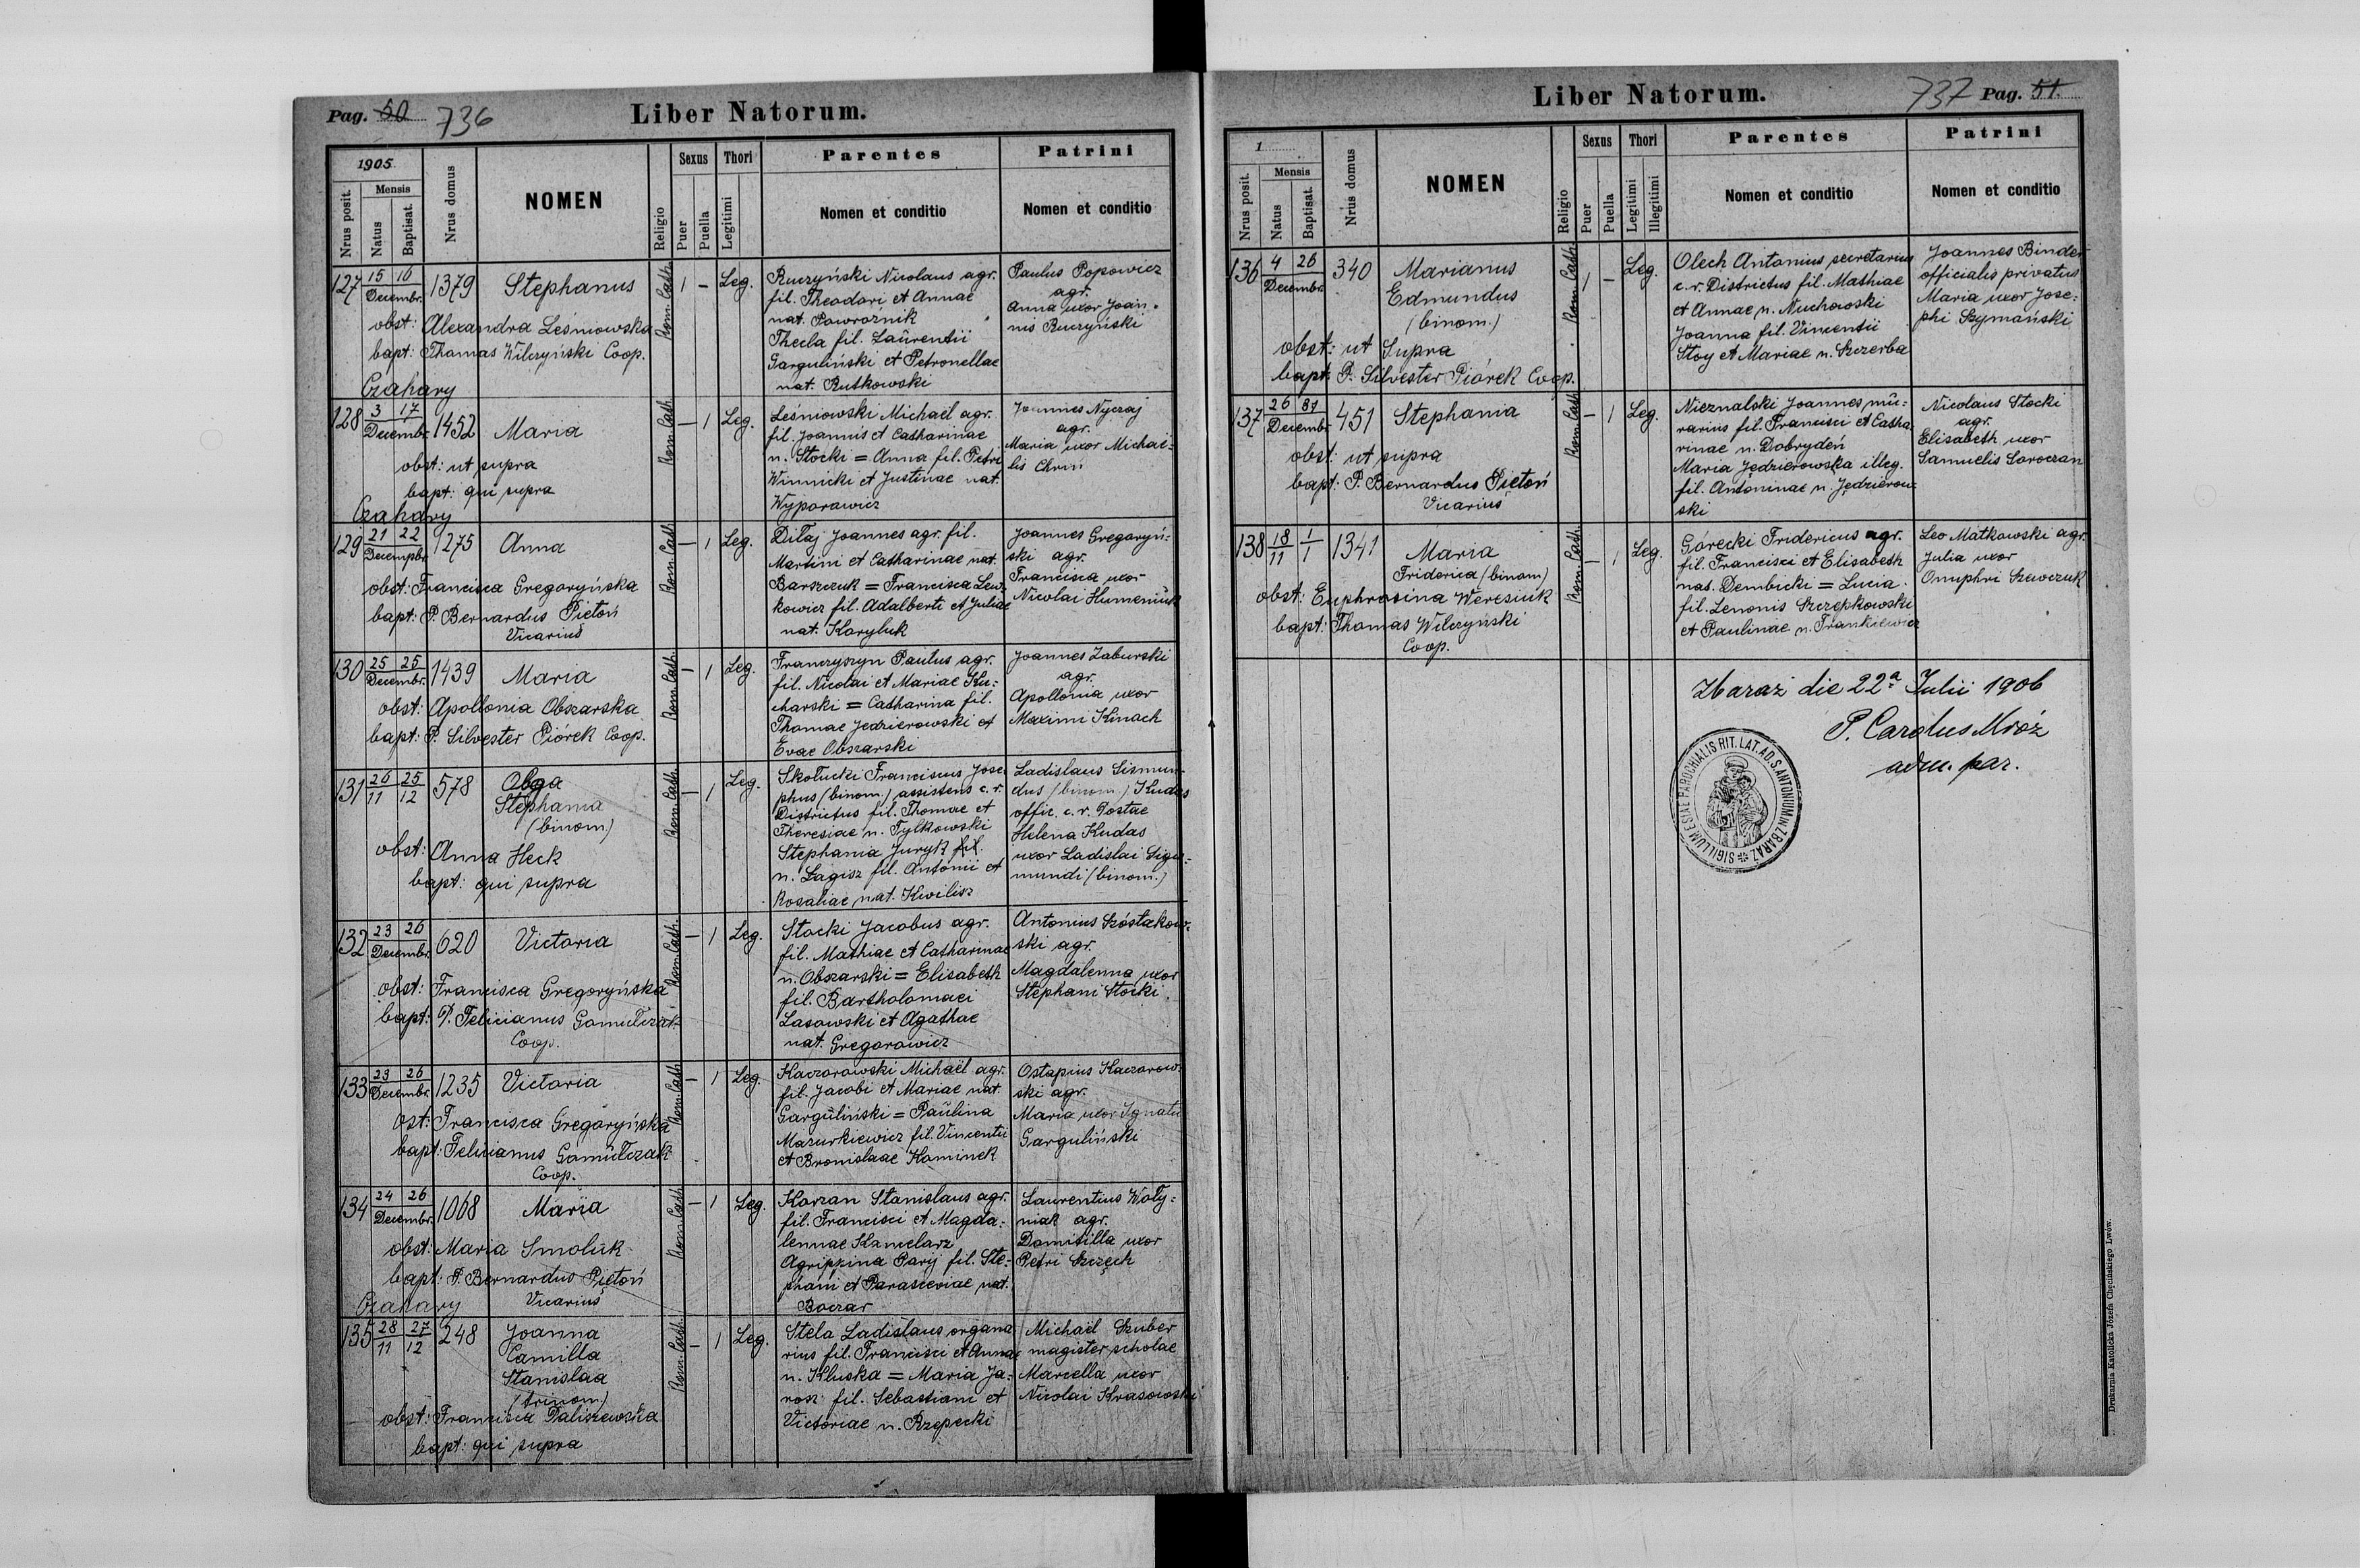 Pag. 50 736
Liber Natorum.
1905.
Nrus posit.
Mensis
Natus
Baptisat.
Nrus domus
NOMEN
Religio
Sexus
Puer
Puella
Thori
Legitimi
Parentes
Nomen et conditio
Patrini
Nomen et conditio
127
15 16
Decembr.
1379
Stephanus
Rom. Cath.
1 –
Leg.
obst: Alexandra Leśniowska
bapt: Thomas Wilczyński Coop.
Czahary
Ruczyński Nicolaus agr.
fil. Theodori et Annae
nat. Powroznik
Thecla fil. Laurentii
Garguliński et Petronellae
nat. Rutkowski
Paulus Popowicz
agr.
Anna uxor Joan-
nis Ruczyński
128
3 17
Decembr.
1452
Maria
Rom. Cath.
– 1
Leg.
obst: ut supra
bapt: qui supra
Czahary
Leśniowski Michaël agr.
fil. Joannis et Catharinae
n. Stocki = Anna fil. Petri
Winnicki et Justinae nat.
Wyporowicz
Joannes Nyczaj
agr.
Maria uxor Michaë-
lis
129
21 22
Decempbr.
1275
Anna
Rom. Cath.
– 1
Leg.
obst: Francisca Gregoryńska
bapt: P. Bernardus Pietoń
Vicarius
Diłaj Joannes agr. fil.
Martini et Catharinae nat.
Barszczuk = Francisca Lew-
kowicz fil. Adalberti et Juliae
nat. Koryluk
Joannes Gregoryń-
ski agr.
Francisca uxor
Nicolai Humeniuk
130
25 25
Decembr.
1439
Maria
Rom. Cath.
– 1
Leg.
obst: Apollonia Obszarska
bapt: P. Silvester Piórek Coop.
Franczyszyn Paulus agr.
fil. Nicolai et Mariae Ku-
charski = Catharina fil.
Thomae Jedzierowski et
Evae Obszarski
Joannes Zaburski
agr.
Apollonia uxor
Maximi Kinach
131
26 25
11 12
578
Olga
Stephania
(binom.)
Rom. Cath.
– 1
Leg.
obst: Anna Heck
bapt: qui supra
Skołucki Franciscus Jose-
phus (binom.) assistens c. r.
Districtus fil. Thomae et
Theresiae n. Tylkowski
Stephania Juryk fil.
n. Łagisz fil. Antonii et
Rosaliae nat. Kwilisz
Ladislaus Sismun-
dus (binom.) Kudas
offic. c. r. Postae
Helena Kudas
uxor Ladislai Sigis-
mundi (binom.)
132
23 26
Decembr.
620
Victoria
Rom. Cath.
– 1
Leg.
obst: Francisca Gregoryńska
bapt: P. Felicianus Gomułczak
Coop.
Stocki Jacobus agr.
fil. Mathiae et Catharinae
n. Obszarski = Elisabeth
fil. Bartholomaei
Lasowski et Agathae
nat. Gregorowicz
Antonius Szóstakow-
ski agr.
Magdalenna uxor
Stephani Stocki
133
23 26
Decembr.
1235
Victoria
Rom. Cath.
– 1
Leg.
ost: Francisca Gregoryńska
bapt: Felicianus Gomułczak
Coop.
Kaczorowski Michaël agr.
fil. Jacobi et Mariae nat.
Garguliński = Paulina
Mazurkiewicz fil. Vincentii
et Bronislaae Kominek
Ostapius Kaczorow-
ski agr.
Maria uxor Ignatii
Garguliński
134
24 26
Decembr.
1068
Maria
Rom. Cath.
– 1
Leg.
obst: Maria Smoluk
bapt: P. Bernardus Pietoń
Vicarius
Czahary
Korzan Stanislaus agr.
fil. Francisci et Magda-
lennae Kanclarz
Agrippina Paryj fil. Ste-
phani et Parasceviae nat.
Boczar
Laurentius Woły-
niak agr.
Domitilla uxor
Petri Szczęch
135
28 27
11 12
248
Joanna
Camilla
Stanislaa
(trinom)
Rom. Cath.
– 1
Leg.
obst: Francisca Paliszewska
bapt: qui supra
Stela Ladislaus organa
rius fil. Francisci et Annae
n. Kluska = Maria Ja-
rosz fil. Sebastiani et
Victoriae n. Rzepecki
Michaël Szuber
magister scholae
Marcella uxor
Nicolai Krasowski
Liber Natorum.
737 Pag. 51.
1
Nrus posit.
Mensis
Natus
Baptisat.
Nrus domus
NOMEN
Religio
Sexus
Puer
Puella
Thori
Legitimi
Illegitimi
Parentes
Nomen et conditio
Patrini
Nomen et conditio
136
4 26
Decembr.
340
Marianus
Edmundus
(binom.)
Rom. Cath.
1 –
Leg.
obst: ut Supra
bapt: P. Silvester Piórek Coop.
Olech Antonius secretarius
c. r. Districtus fil. Mathiae
et Annae n. Nuchowski
Joanna fil. Vincentii
Stoy et Mariae n. Szczerba
Joannes Binder
officialis privatus
Maria uxor Jose-
phi Szymański
137
26 31
Decembr.
451
Stephania
Rom. Cath.
– 1
Leg.
obst: ut supra
bapt: P. Bernardus Pietoń
Vicarius
Nieznalski Joannes mu-
rarius fil. Francisci et Catha-
rinae n. Dobrydeń
Maria Jędzierowska illeg.
fil. Antoninae n. Jędzierow-
ski
Nicolaus Stocki
agr.
Elisabeth uxor
Samuelis Soroczan
138
18 1
11 1
1341
Maria
Friderica (binom)
Rom. Cath.
– 1
Leg.
obst: Euphrosina Weresiuk
bapt: Thomas Wilczyński
Coop.
Górecki Fridericus agr.
fil. Francisci et Elisabeth
nat. Dembicki = Lucia
fil. Lenonis Szczepkowski
et Paulinae n. Frankiewicz
Leo Matkowski agr.
Julia uxor
Onuphri Szewczuk
Zbaraż die 22ª Julii 1906
P. Carolus Mróz
adm. par.
SIGILLUM ECLAE PAROCHIALIS RIT. LAT. AD. S. ANTONIUM IN ZBARAŻ
Drukarnia Katolicka Józefa Chęcińskiego Lwów.